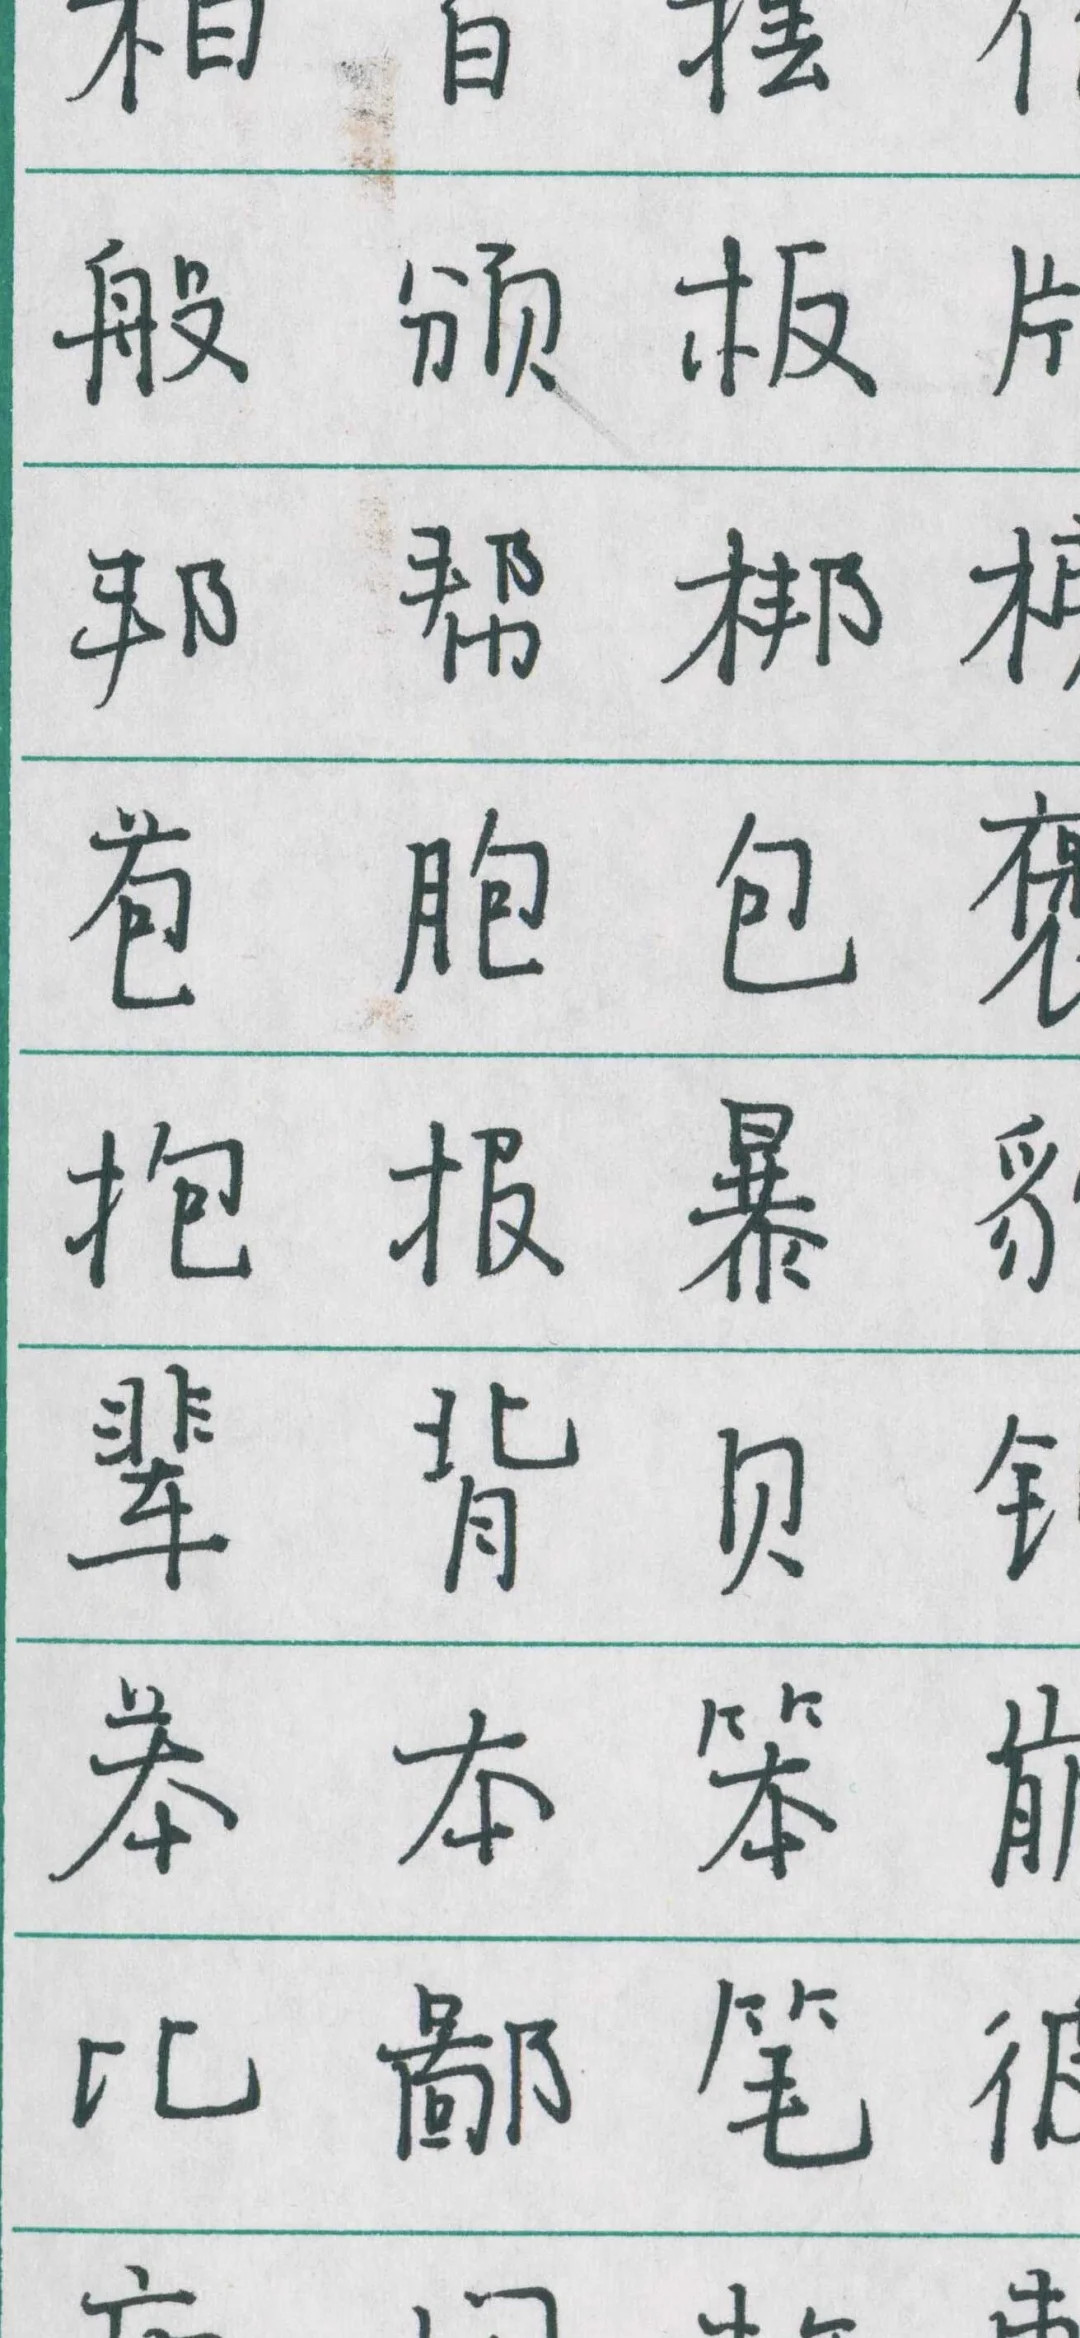 柏 百 摆
般 颁 板
邦 帮 梆
苞 胞 包 褒
抱 报 暴
辈 背 贝
苯 本 笨
比 鄙 笔